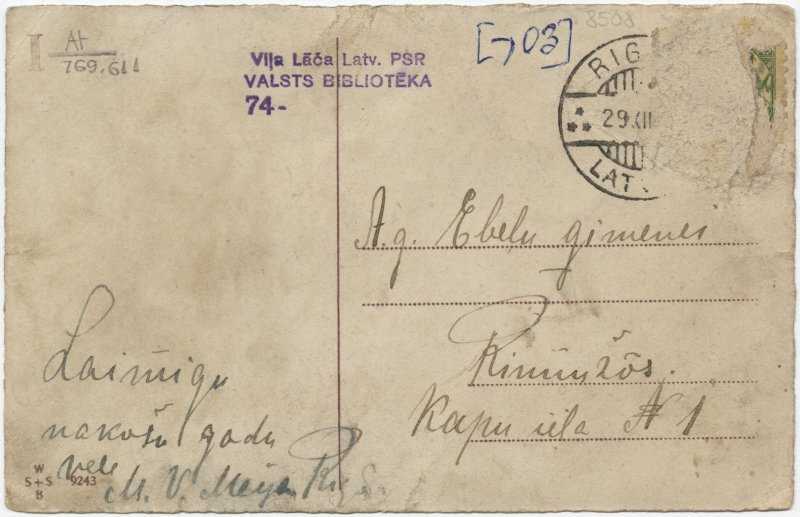 I At
769.611
Viļa Lāča Latv. PSR
VALSTS BIBLIOTĒKA
74-
[703]
8508
RIG
29 XII
LAT
A. g. Ebeļu ģimenes
Rimnyžōs.
Kapu iela № 1
Laimīgu
nākošu gadu
vēlē
M. V. Meija
W
S+S 9243
B